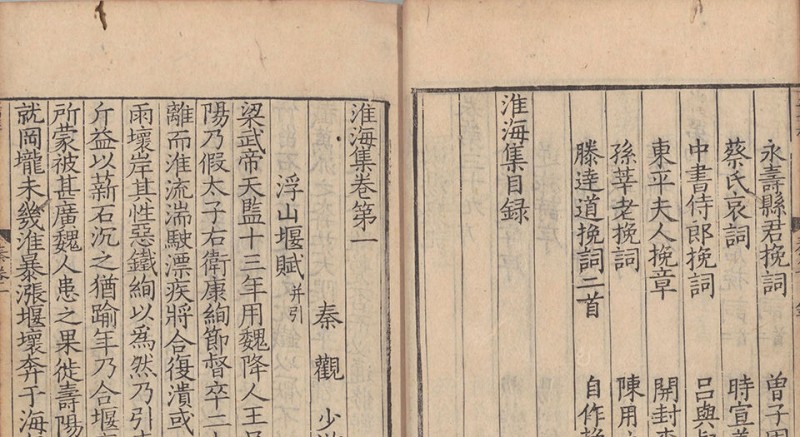 永壽縣君挽詞 曾子
蔡氏哀詞 時宣
中書侍郎挽詞 呂與
東平夫人挽章 開封
孫莘老挽詞 陳用
滕達道挽詞二首 自作挽
淮海集目録
淮海集卷第一
浮山堰賦并引
秦觀 少
梁武帝天監十三年用魏降人王
陽乃假太子右衛康絢節督卒二
離而淮流湍駛漂疾將合復潰或
雨壞岸其性惡鐵絢以為然乃引
斤益以薪石沉之猶踰年乃合堰
所蒙被甚廣魏人患之果徙壽陽
就岡壠未幾淮暴漲堰壞奔于海